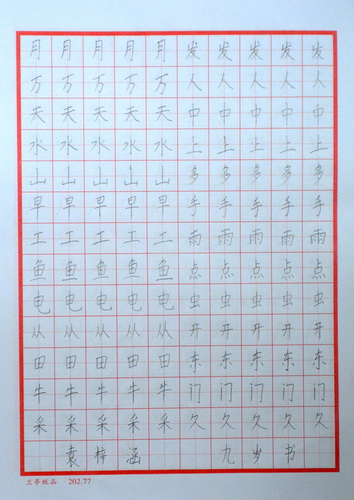 月月月月月发发发发发
万万万万万人人人人人
夫夫夫夫夫中中中中中
水水水水水上上上上上
山山山山山多多多多多
早早早早早手手手手手
工工工工工雨雨雨雨雨
鱼鱼鱼鱼鱼点点点点点
电电电电电虫虫虫虫虫
从从从从从开开开开开
田田田田田东东东东东
牛牛牛牛牛门门门门门
采采采采采久久久久久
袁梓涵 九岁书
兰亭纸品 202.77